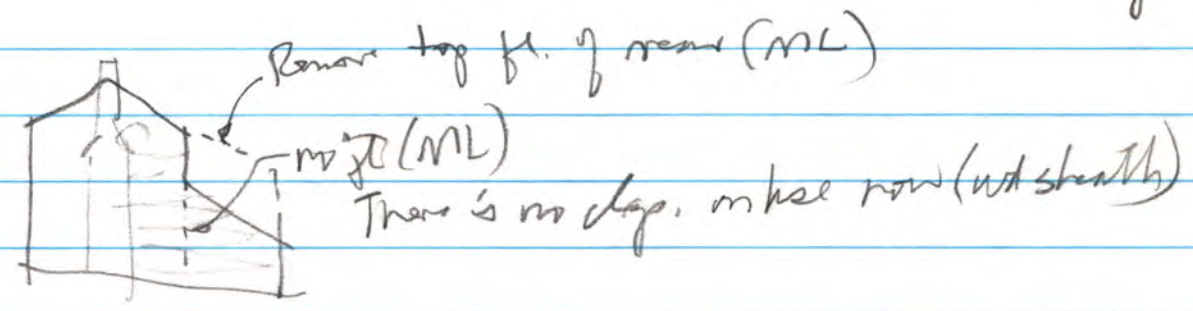 Remove top fl. of rear (ML)
no jt (ML)
There is no clap. on hse now (wd sheath)